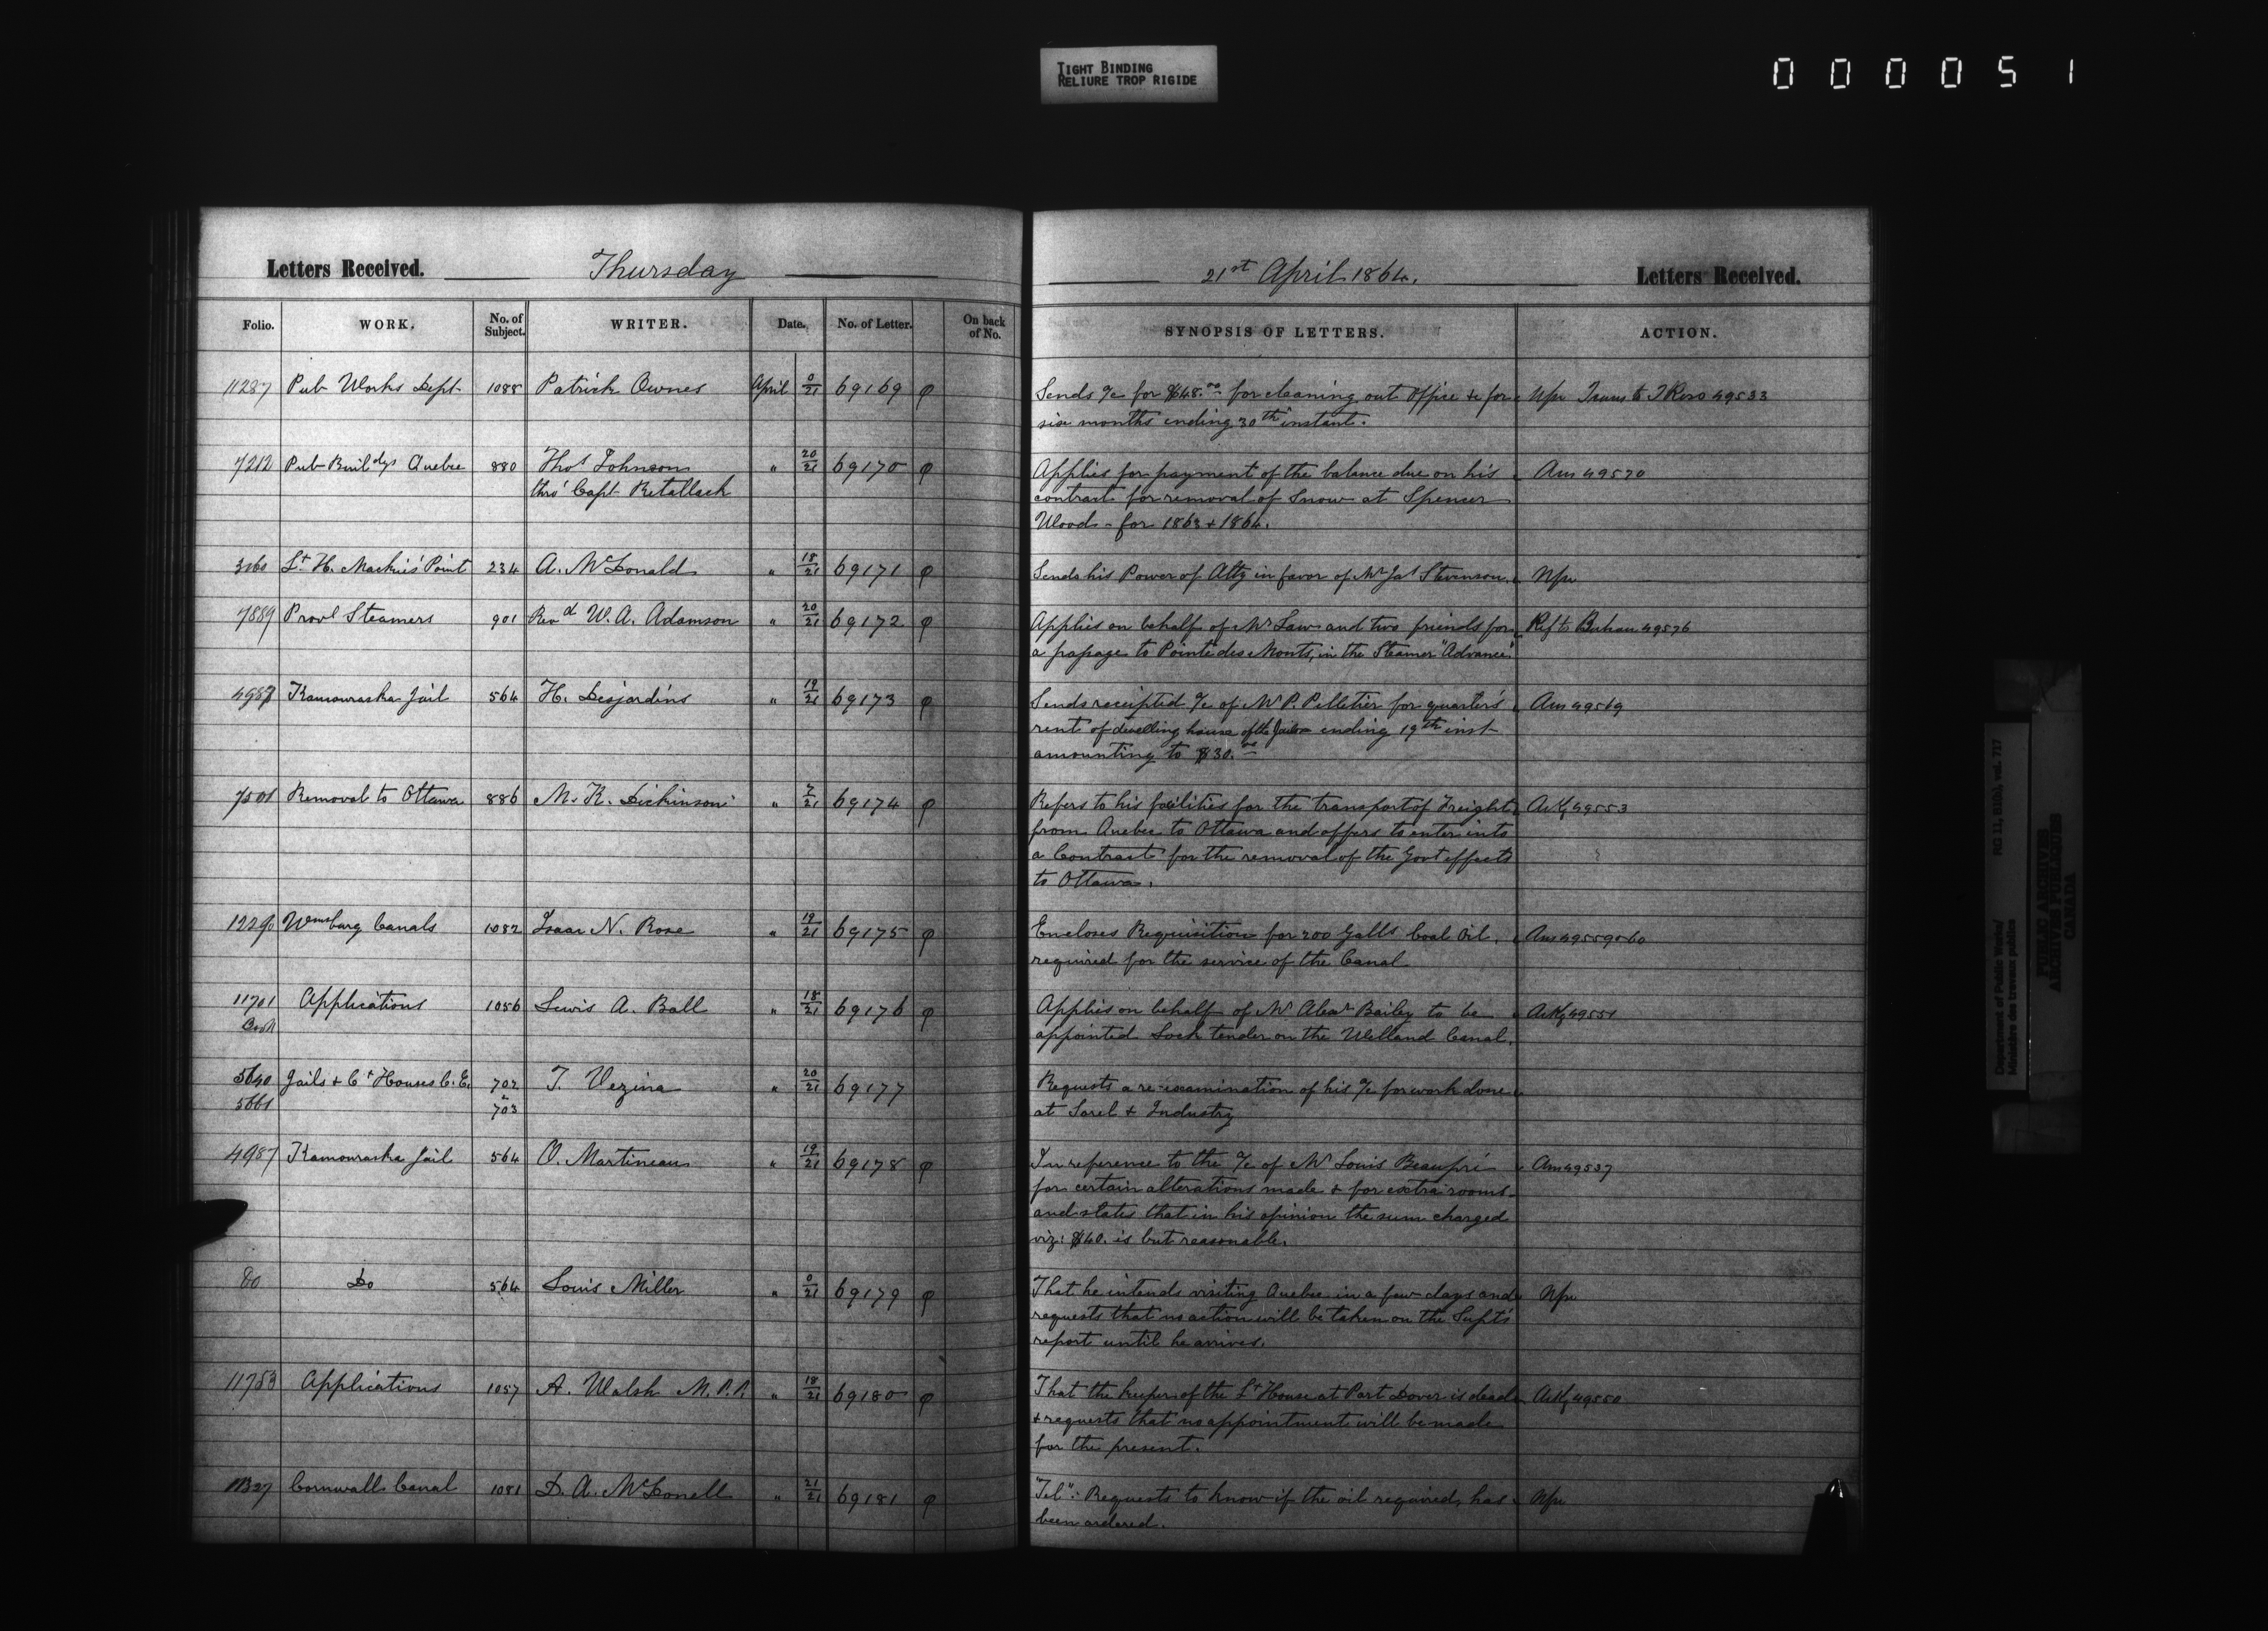 TIGHT BINDING
RELIURE TROP RIGIDE
000051
Letters Received. Thursday
21st April 1864. Letters Received.
Folio. WORK. No. of Subject. WRITER. Date. No. of Letter. On back of No.
SYNOPSIS OF LETTERS. ACTION.
11287 Pub Works Dept 1088 Patrick Ownes April 0/21 69169 φ
Sends a/c for $48.00 for cleaning out Office &c for Npr Trans to T Ross 49533
six months ending 30th instant.
7212 Pub Buildgs Quebec 880 Thos Johnson " 20/21 69170 φ
thro' Capt Retallack
Applies for payment of the balance due on his Ans 49570
contract for removal of Snow at Spencer
Wood - for 1863 & 1864.
3160 Lt H. Mackie's Point 234 A. McDonald " 18/21 69171 φ
Sends his Power of Atty in favor of Mr Jas Stevenson. Npr
7889 Provl Steamers 901 Revd W. A. Adamson " 20/21 69172 φ
Applies on behalf of Mr Law and two friends for Ref to Buchan 49576
a passage to Pointe des Monts, in the Steamer "Advance"
4987 Kamouraska Jail 564 H. Desjardins " 19/21 69173 φ
Sends receipted a/c of Mr P. Pelletier for quarter's Ans 49569
rent of dwelling house of the Jailor ending 19th inst
amounting to $30.00
7501 Removal to Ottawa 886 M. K. Dickinson " 7/21 69174 φ
Refers to his facilities for the transport of Freight Ackg 49553
from Quebec to Ottawa and offers to enter into
a Contract for the removal of the Govt effects
to Ottawa.
12290 Wmsburg Canals 1082 Isaac N. Rose " 19/21 69175 φ
Encloses Requisition for 200 Galls Coal Oil, Ans 49559 & 60
required for the service of the Canal
11701 Applications 1056 Lewis A. Ball " 18/21 69176 φ
Applies on behalf of Mr Alexr Bailey to be Ackg 49551
appointed Lock tender on the Welland Canal.
5640 Jails & Ct Houses C.E. 702 T. Vezina " 20/21 69177
5661 & 703
Requests a re-examination of his a/c for work done
at Sorel & Industry
4987 Kamouraska Jail 564 O. Martineau " 19/21 69178 φ
In reference to the a/c of Mr Louis Beaupré Ans 49537
for certain alterations made & for extra rooms
and states that in his opinion the sum charged
viz: $40. is but reasonable.
Do Do 564 Louis Miller " 0/21 69179 φ
That he intends visiting Quebec in a few days and Npr
requests that no action will be taken on the Supt's
report until he arrives.
11753 Applications 1057 A. Walsh M.P.P. " 18/21 69180 φ
That the keeper of the Lt House at Port Dover is dead Ackg 49550
& requests that no appointment will be made
for the present.
Cornwall Canal 1081 D. A. McDonell " 21/21 69181 φ
"Tel": Requests to know if the oil required, has Npr
been ordered.
Department of Public Works/
Ministère des travaux publics
RG 11, B1(b), vol. 717
PUBLIC ARCHIVES
ARCHIVES PUBLIQUES
CANADA